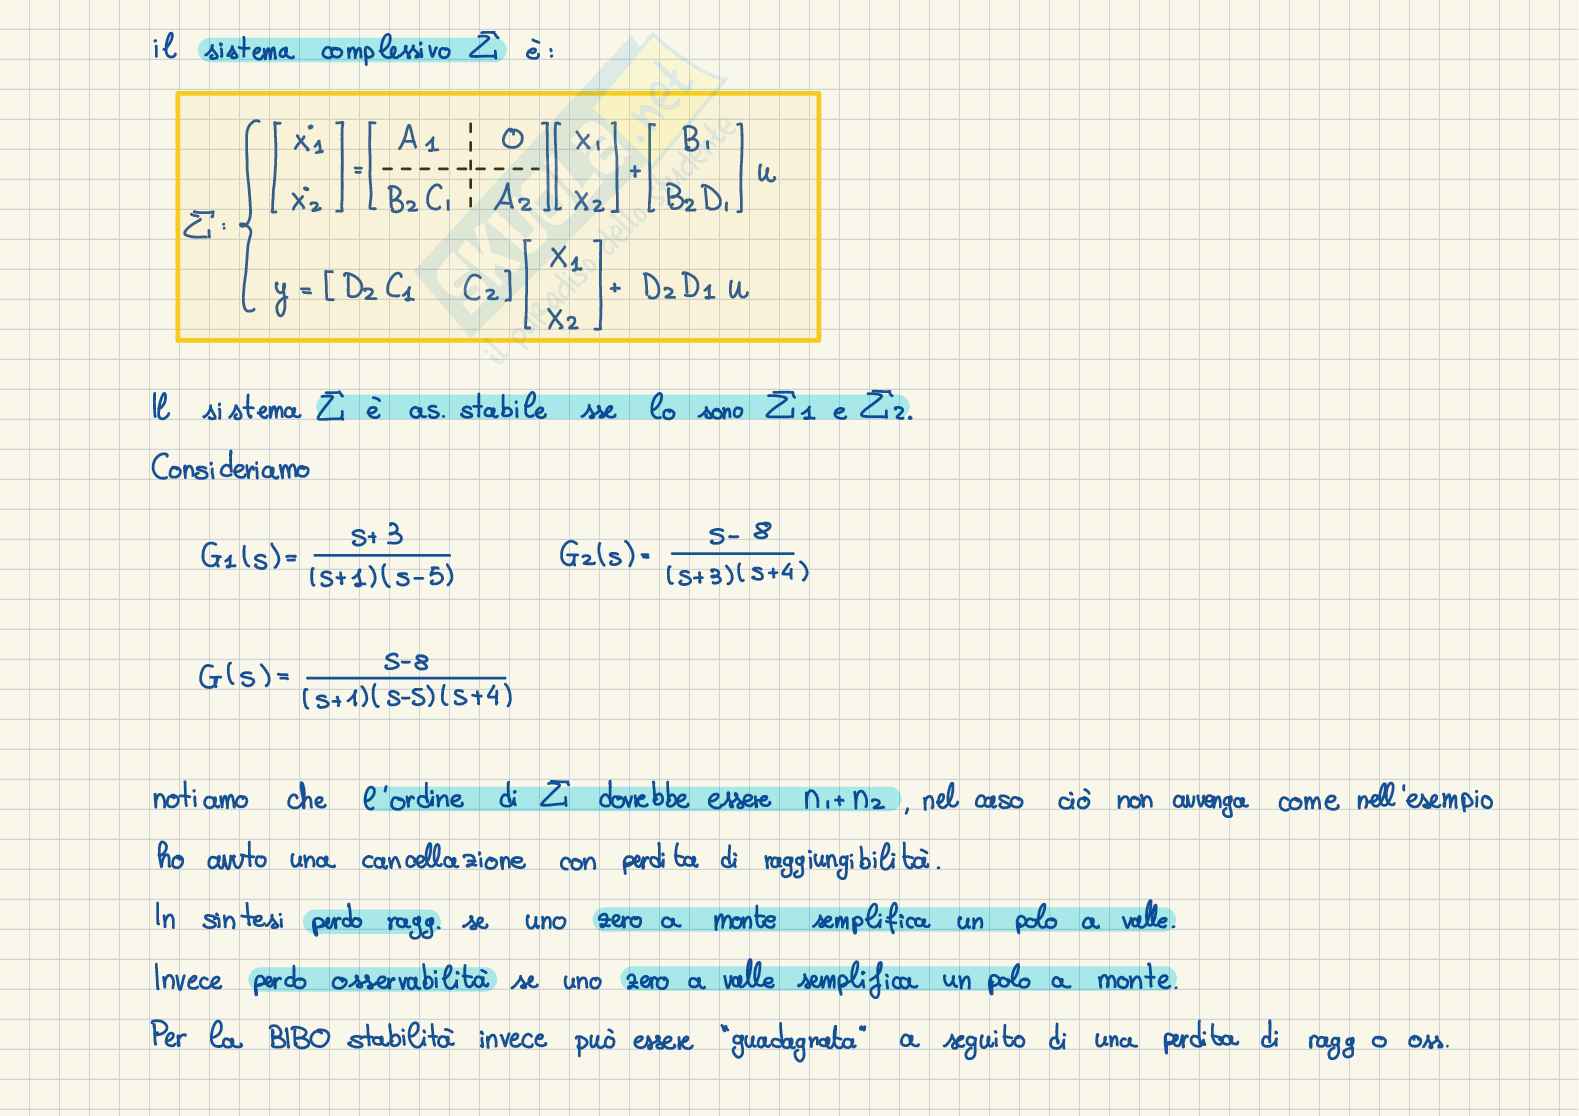 il sistema complessivo Σ è:
Σ: { [ẋ1 ẋ2] = [A1 0 B2C1 A2] [x1 x2] + [B1 B2D1] u
y = [D2C1 C2] [x1 x2] + D2D1 u
Il sistema Σ è as. stabile sse lo sono Σ1 e Σ2.
Consideriamo
G1(s) = s+3 / (s+1)(s-5) G2(s) = s-8 / (s+3)(s+4)
G(s) = s-8 / (s+1)(s-5)(s+4)
notiamo che l'ordine di Σ dovrebbe essere n1+n2, nel caso ciò non avvenga come nell'esempio
ho avuto una cancellazione con perdita di raggiungibilità.
In sintesi perdo ragg. se uno zero a monte semplifica un polo a valle.
Invece perdo osservabilità se uno zero a valle semplifica un polo a monte.
Per la BIBO stabilità invece può essere "guadagnata" a seguito di una perdita di ragg o oss.
SKUOLA.net
il paradiso dello studente